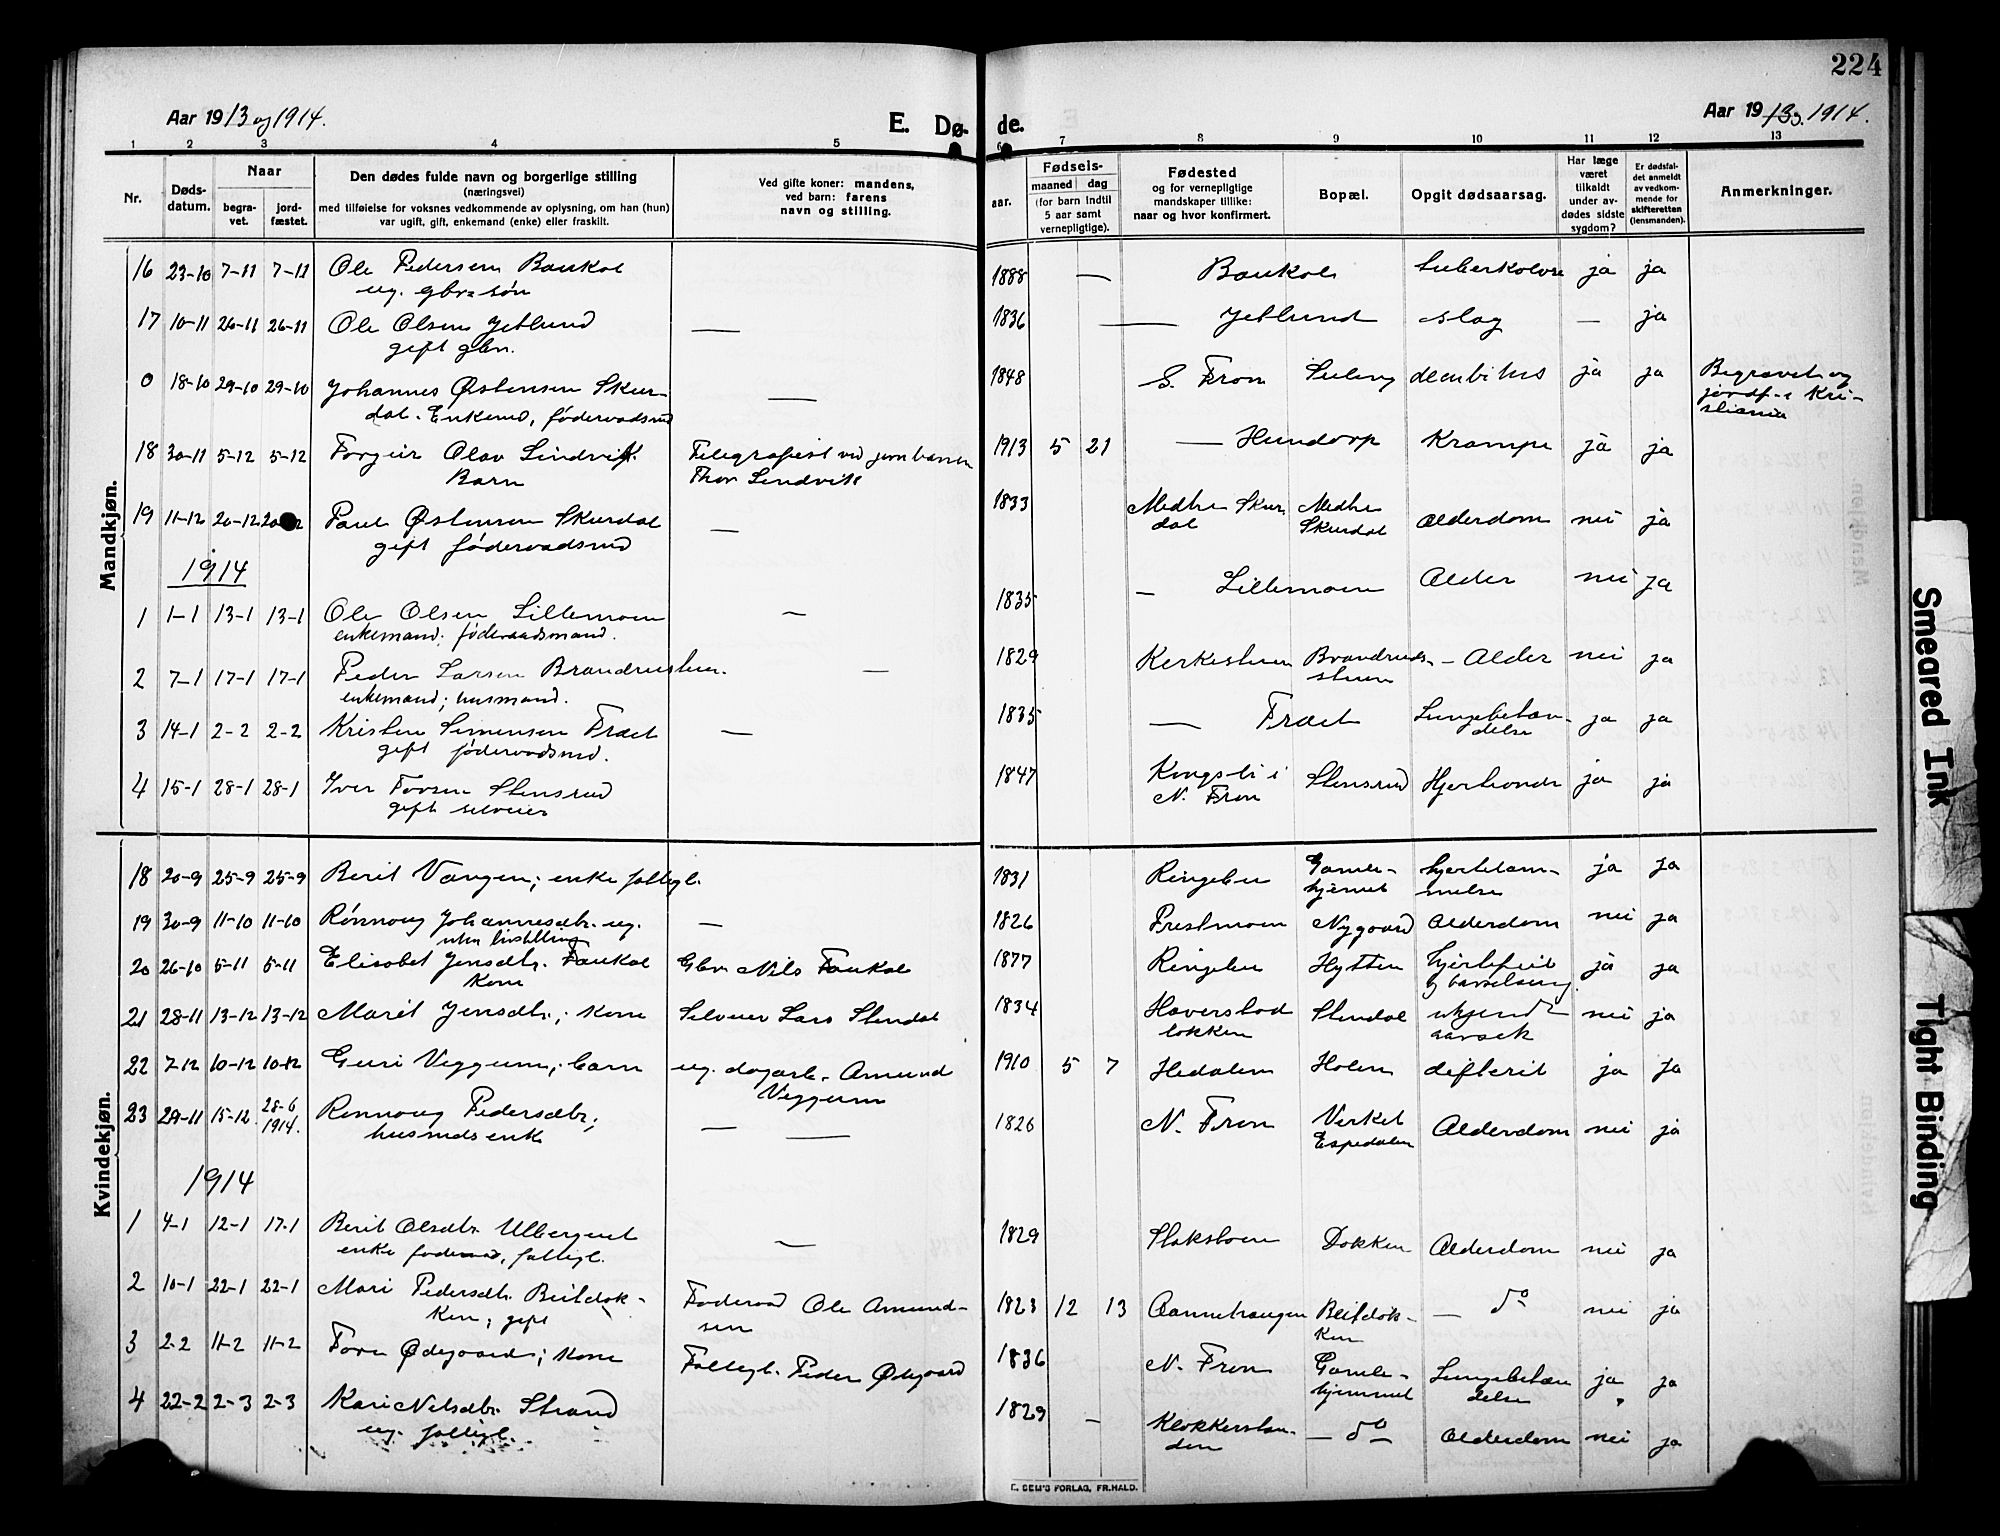 224
Aar 1913 og 1914.
E. Dø-
de.
Aar 1913 og 1914.
1 2 3 4 5 6 7 8 9 10 11 12 13
Nr.
Døds-
datum.
Naar
begra-
vet.
jord-
fæstet.
Den dødes fulde navn og borgerlige stilling
(næringsvei)
med tilføielse for voksnes vedkommende av oplysning, om han (hun)
var ugift, gift, enkemand (enke) eller fraskilt.
Ved gifte koner: mandens,
ved barn: farens
navn og stilling.
Fødsels-
aar.
maaned dag
(for barn indtil
5 aar samt
vernepligtige).
Fødested
og for vernepligtige
mandskaper tillike:
naar og hvor konfirmert.
Bopæl.
Opgit dødsaarsag.
Har læge
været
tilkaldt
under av-
dødes sidste
sygdom?
Er dødsfal-
det anmeldt
av vedkom-
mende for
skifteretten
(lensmanden).
Anmerkninger.
Mandkjøn.
16 23-10 7-11 7-11 Ole Pedersen Baukol 1888 — Baukol Tuberkolose ja ja
ug. gbr.søn
17 10-11 26-11 26-11 Ole Olsen Jetlund — 1836 — Jetlund slag — ja
gift gbr.
0 18-10 29-10 29-10 Johannes Østensen Skur- — 1848 S. Fron ja ja Begravet og
dal. Enkemd, föderaadsmd jordf. i Kri-
stiania
18 30-11 5-12 5-12 Torgeir Olav Lindvik. Telegrafist ved jernbanen 1913 5 21 — Hundorp Krampe ja ja
Barn Thor Lindvik
19 11-12 20-12 Paul Østensen Skurdal — 1833 Medhe Skur Medhe Alderdom nei ja
gift föderaadsmd dal Skurdal
1914
1 1-1 13-1 13-1 Ole Olsen Lillemoen — 1835 — Lillemoen Alder nei ja
enkemand; föderaadsmand.
2 7-1 17-1 17-1 Peder Larsen Brandrudstuen. — 1829 Kerkestuen Brandruds- — Alder nei ja
enkemand; husmand. stuen
3 14-1 2-2 2-2 Kristen Simensen Fræt — 1835 — Fræt Lungebetæn- ja ja
gift föderaadsmd. delse
4 15-1 28-1 28-1 Iver Torsen Stensrud 1847 Kongsli i Stensrud Hjerteonde ja ja
gift selveier N. Fron
Kvindekjøn.
18 20-9 25-9 25-9 Berit Vangen; enke fattigl. 1831 Ringebu Gamle- hjertelam- ja ja
hjemet melse
19 30-9 11-10 11-10 Rönnoug Johannesdtr. ug. — 1826 Prestmoen Nygaard Alderdom nei ja
uten livstilling
20 26-10 5-11 5-11 Elisabet Jensdtr. Faukal Gbr. Nils Faukal 1877 Ringebu Hytten hjertefeil ja ja
Kone og barselseng.
21 28-11 13-12 13-12 Marit Jensdtr.; Kone Selveier Lars Stendal 1834 Haverstad Stendal ukjend nei ja
lokken aarsak
22 7-12 10-12 10-12 Guri Veggum; barn ug. dagarb. Amund 1910 5 7 Hedalen Holen difterit ja ja
Veggum
23 29-11 15-12. 28-6 Rönnoug Pedersdtr; — — 1826 N. Fron Verket Alderdom nei ja
1914. husmds enke Espedalen
1914
1 4-1 12-1 17-1 Berit Olsdtr. Ulbergeet — 1829 Slaksboen Dokken Alderdom nei ja
enke foderaad, fattigl.
2 10-1 22-1 22-1 Mari Pedersdtr. Beitdok- Foderaad Ole Amund- 1823 12 13 Aannehaugen Beitdok- — do nei ja
ken; gift sen ken
3 2-2 11-2 11-2 Tore Ødegaard; kone Fattigl. Peder Ødegaard 1836 N. Fron Gamle- Lungebetæn ja ja
hjemmet delse
4 22-2 2-3 2-3 Kari Nilsdtr. Strand 1829 — Klokkerstan- — do — Alderdom nei ja
ug. fattigl. den
E. SEM'S FORLAG, FR.HALD.
Smeared Ink
Tight Binding